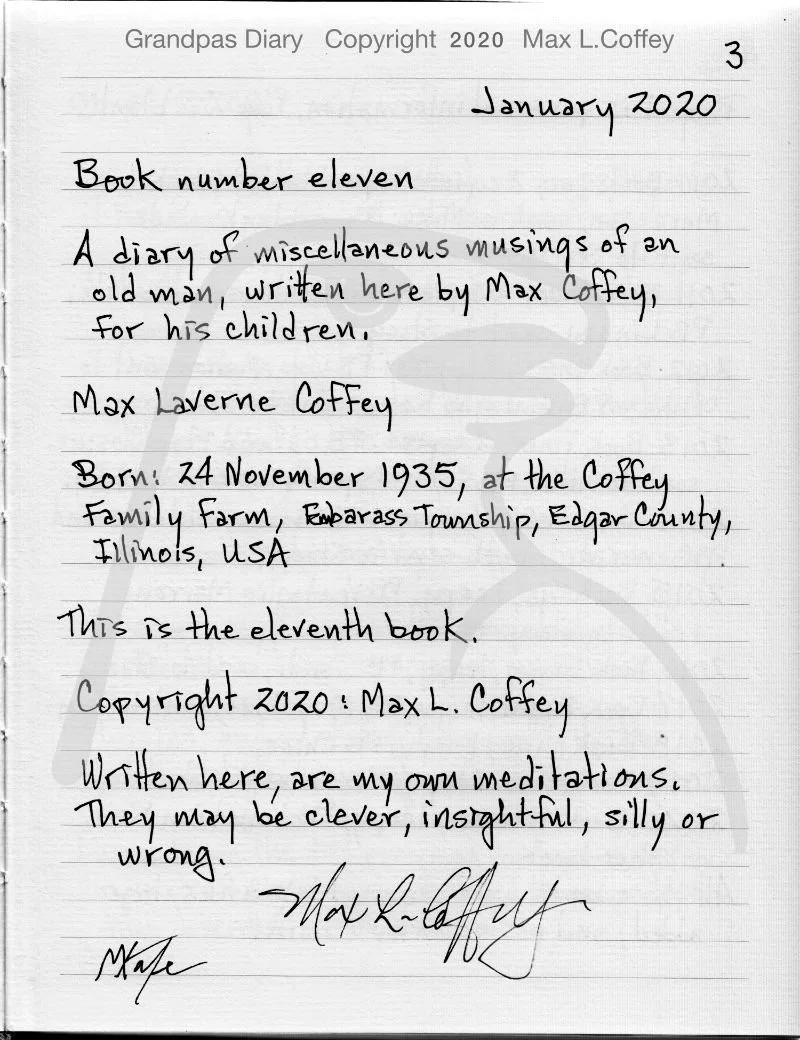 Grandpas Diary Copyright 2020 Max L.Coffey
3
January 2020
Book number eleven
A diary of miscellaneous musings of an
old man, written here by Max Coffey,
for his children.
Max Laverne Coffey
Born: 24 November 1935, at the Coffey
Family Farm, Embarass Township, Edgar County,
Illinois, USA
This is the eleventh book.
Copyright 2020 : Max L. Coffey
Written here, are my own meditations.
They may be clever, insightful, silly or
wrong.
Max L. Coffey